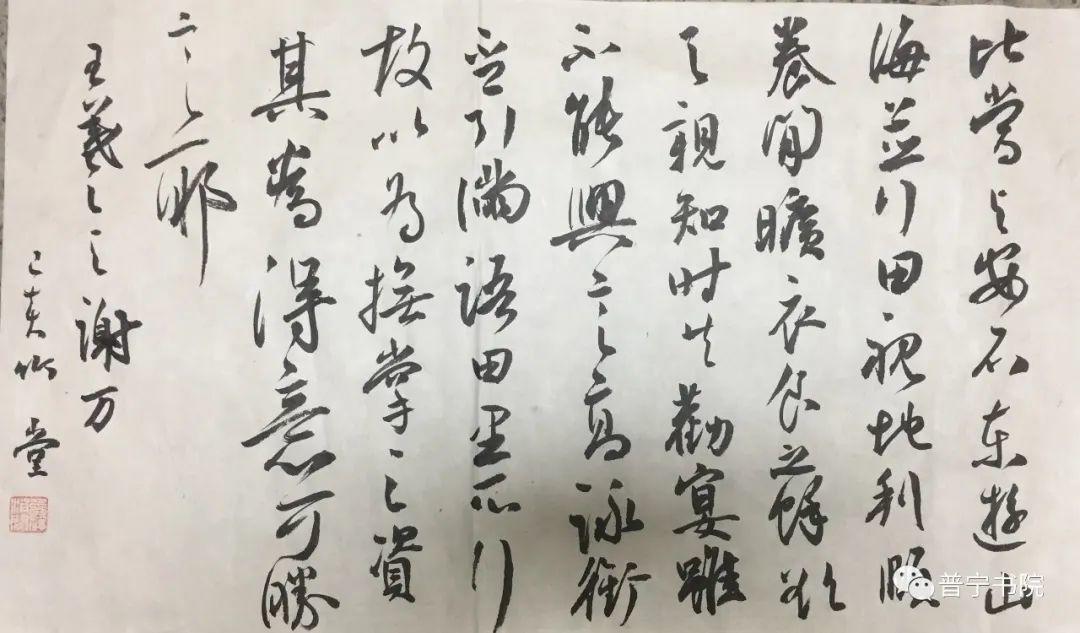 比當与安石东遊山
海並行田視地利頤
養閒曠衣食之餘欲
与親知时共勸宴雖
不能興言高詠銜
杯引滿語田里所行
故以为撫掌之資
其為得意可勝
言耶
王羲之与謝万
己亥竹堂
普宁书院